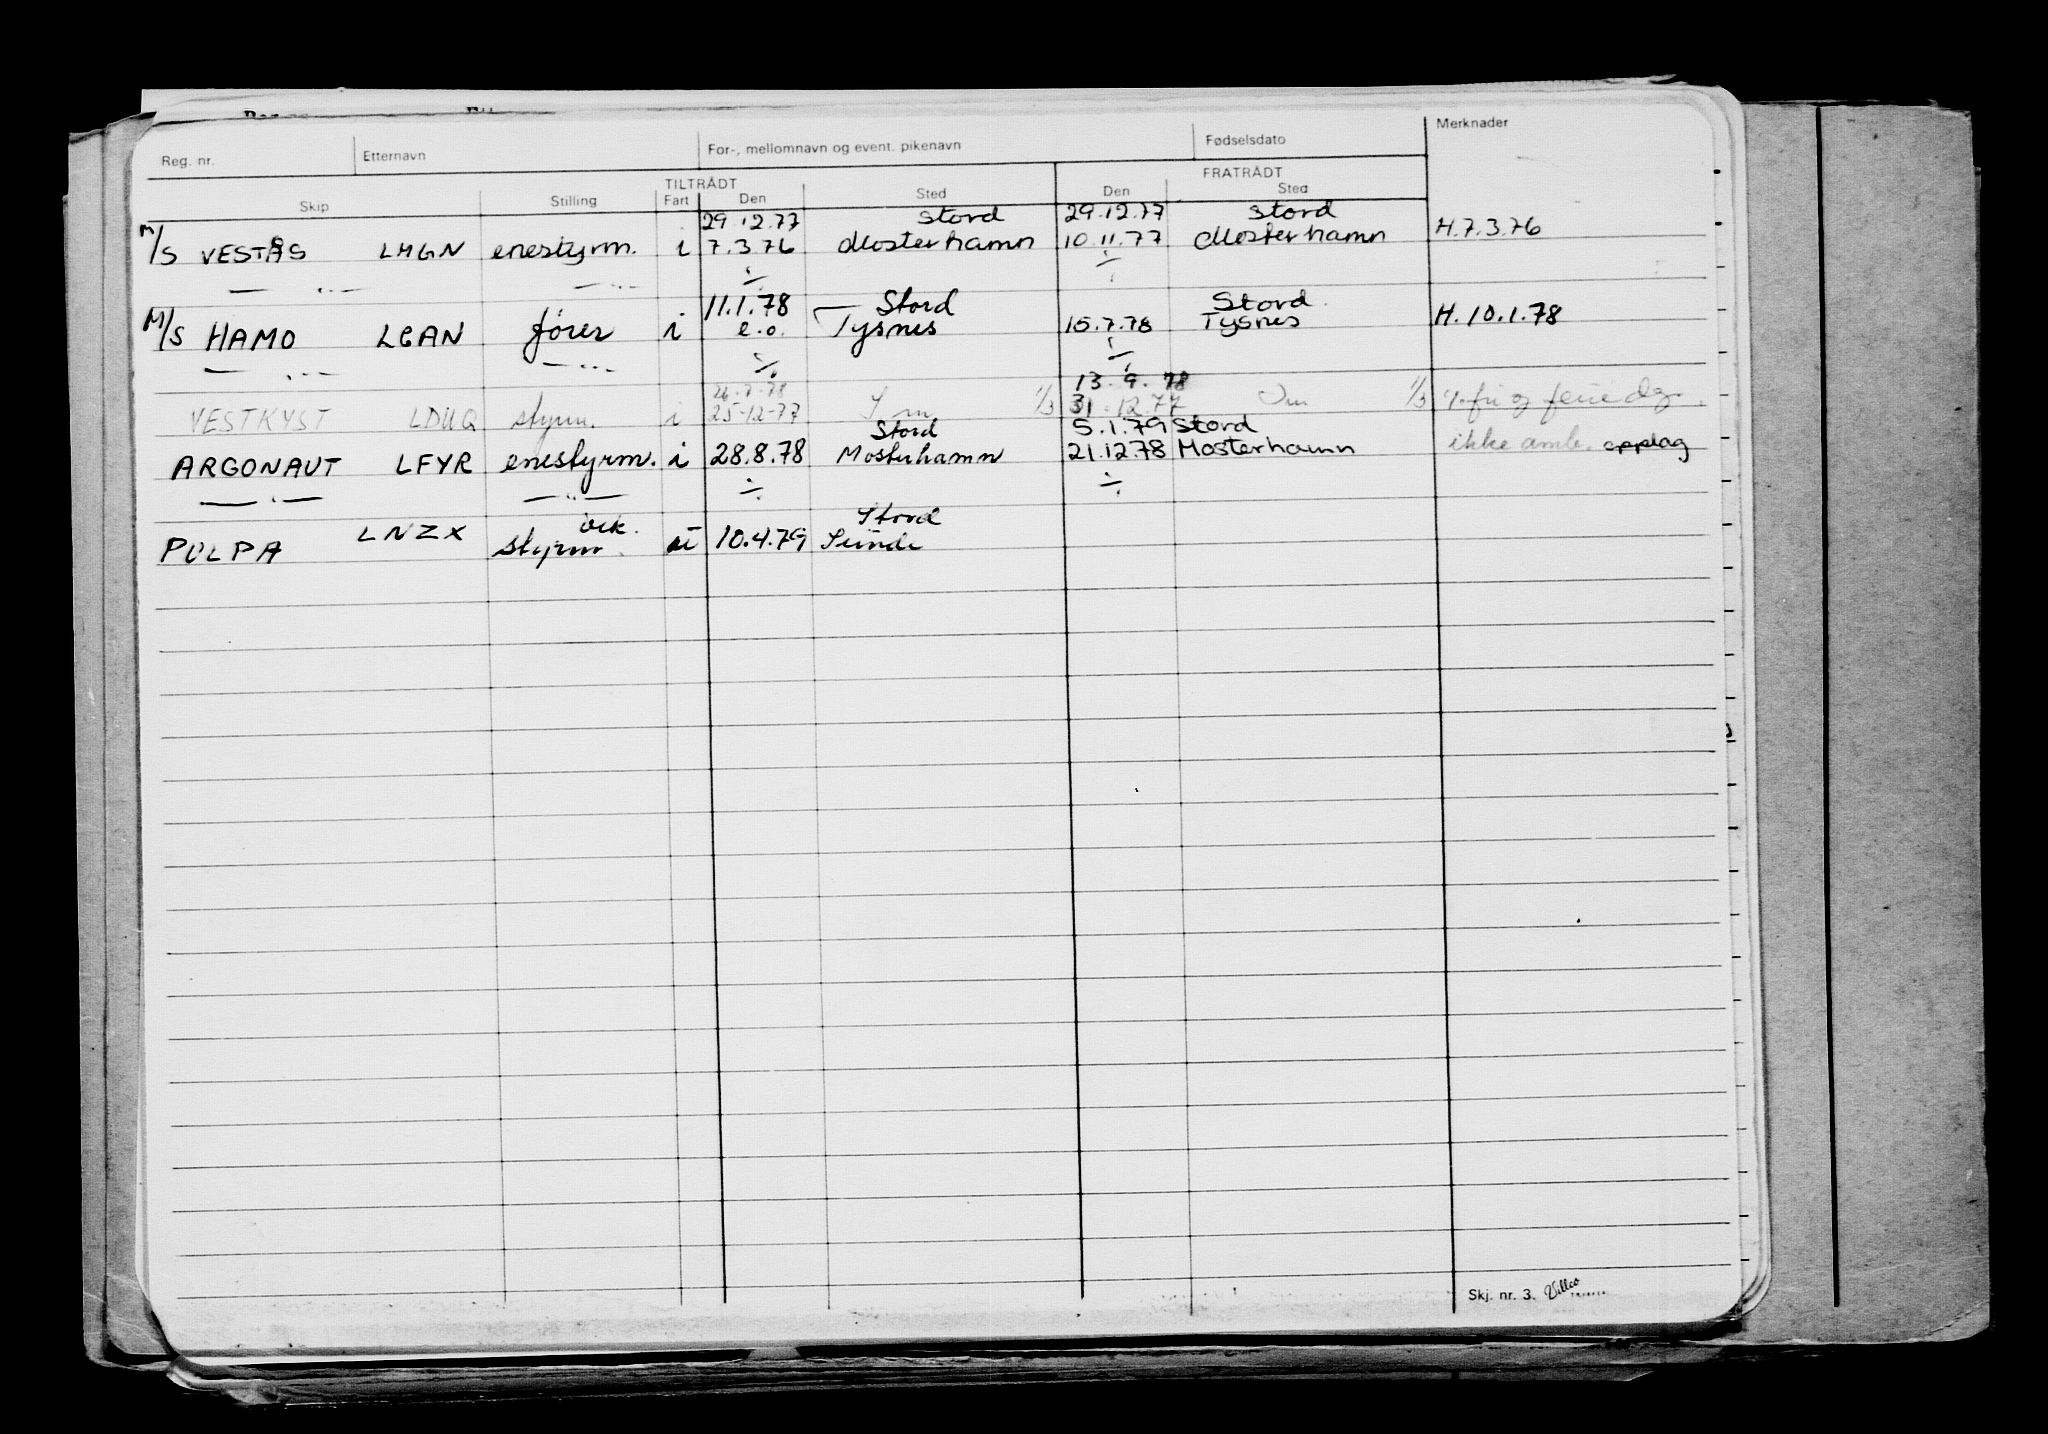 Reg. nr. Etternavn For-, mellomnavn og event. pikenavn Fødselsdato Merknader
TILTRÅDT FRATRÅDT
Skip Stilling Fart Den Sted Den Sted
29.12.77 Stord 29.12.77 Stord
M/S VESTÅS LMGN enestyrm. i 7.3.76 Mosterhamn 10.11.77 Mosterhamn H.7.3.76
— " — — " — ÷ ÷
11.1.78 Stord Stord
M/S HAMO LGAN fører i e.o. Tysnes 15.7.78 Tysnes H.10.1.78
— " — — " — ÷ ÷
26.7.78 13.9.78
VESTKYST LDUQ styrm. i 25-12-77 1/3 31.12.77 1/3 fri og ferie dg.
Stord 5.1.79 Stord
ARGONAUT LFYR enestyrm. i 28.8.78 Mosterhamn 21.12.78 Mosterhamn ikke amb. opplag
— " — — " — ÷ ÷
Stord
PULPA LNZX styrm. 10.4.79 Sunde
Skj. nr. 3. Villco